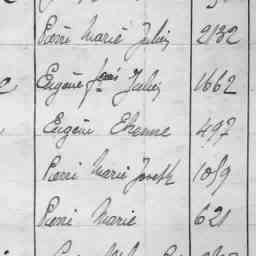 Pierre Marie Julien 2132
Eugène Louis Julien 1662
Eugène Etienne 497
Pierre Marie Joseph 1059
Pierre Marie 621